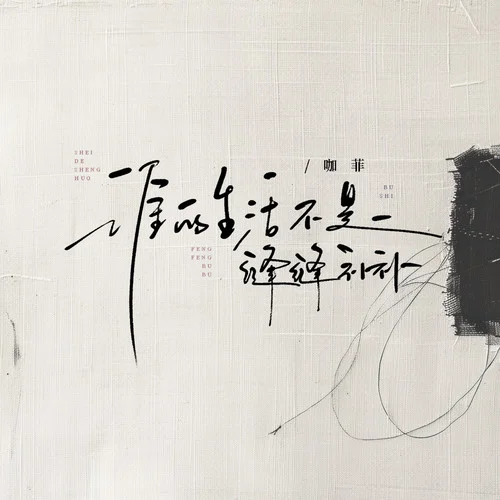 / 咖菲
SHEI
DE
SHENG
HUO
谁的生活不是
BU
SHI
FENG
FENG
BU
BU
缝缝补补